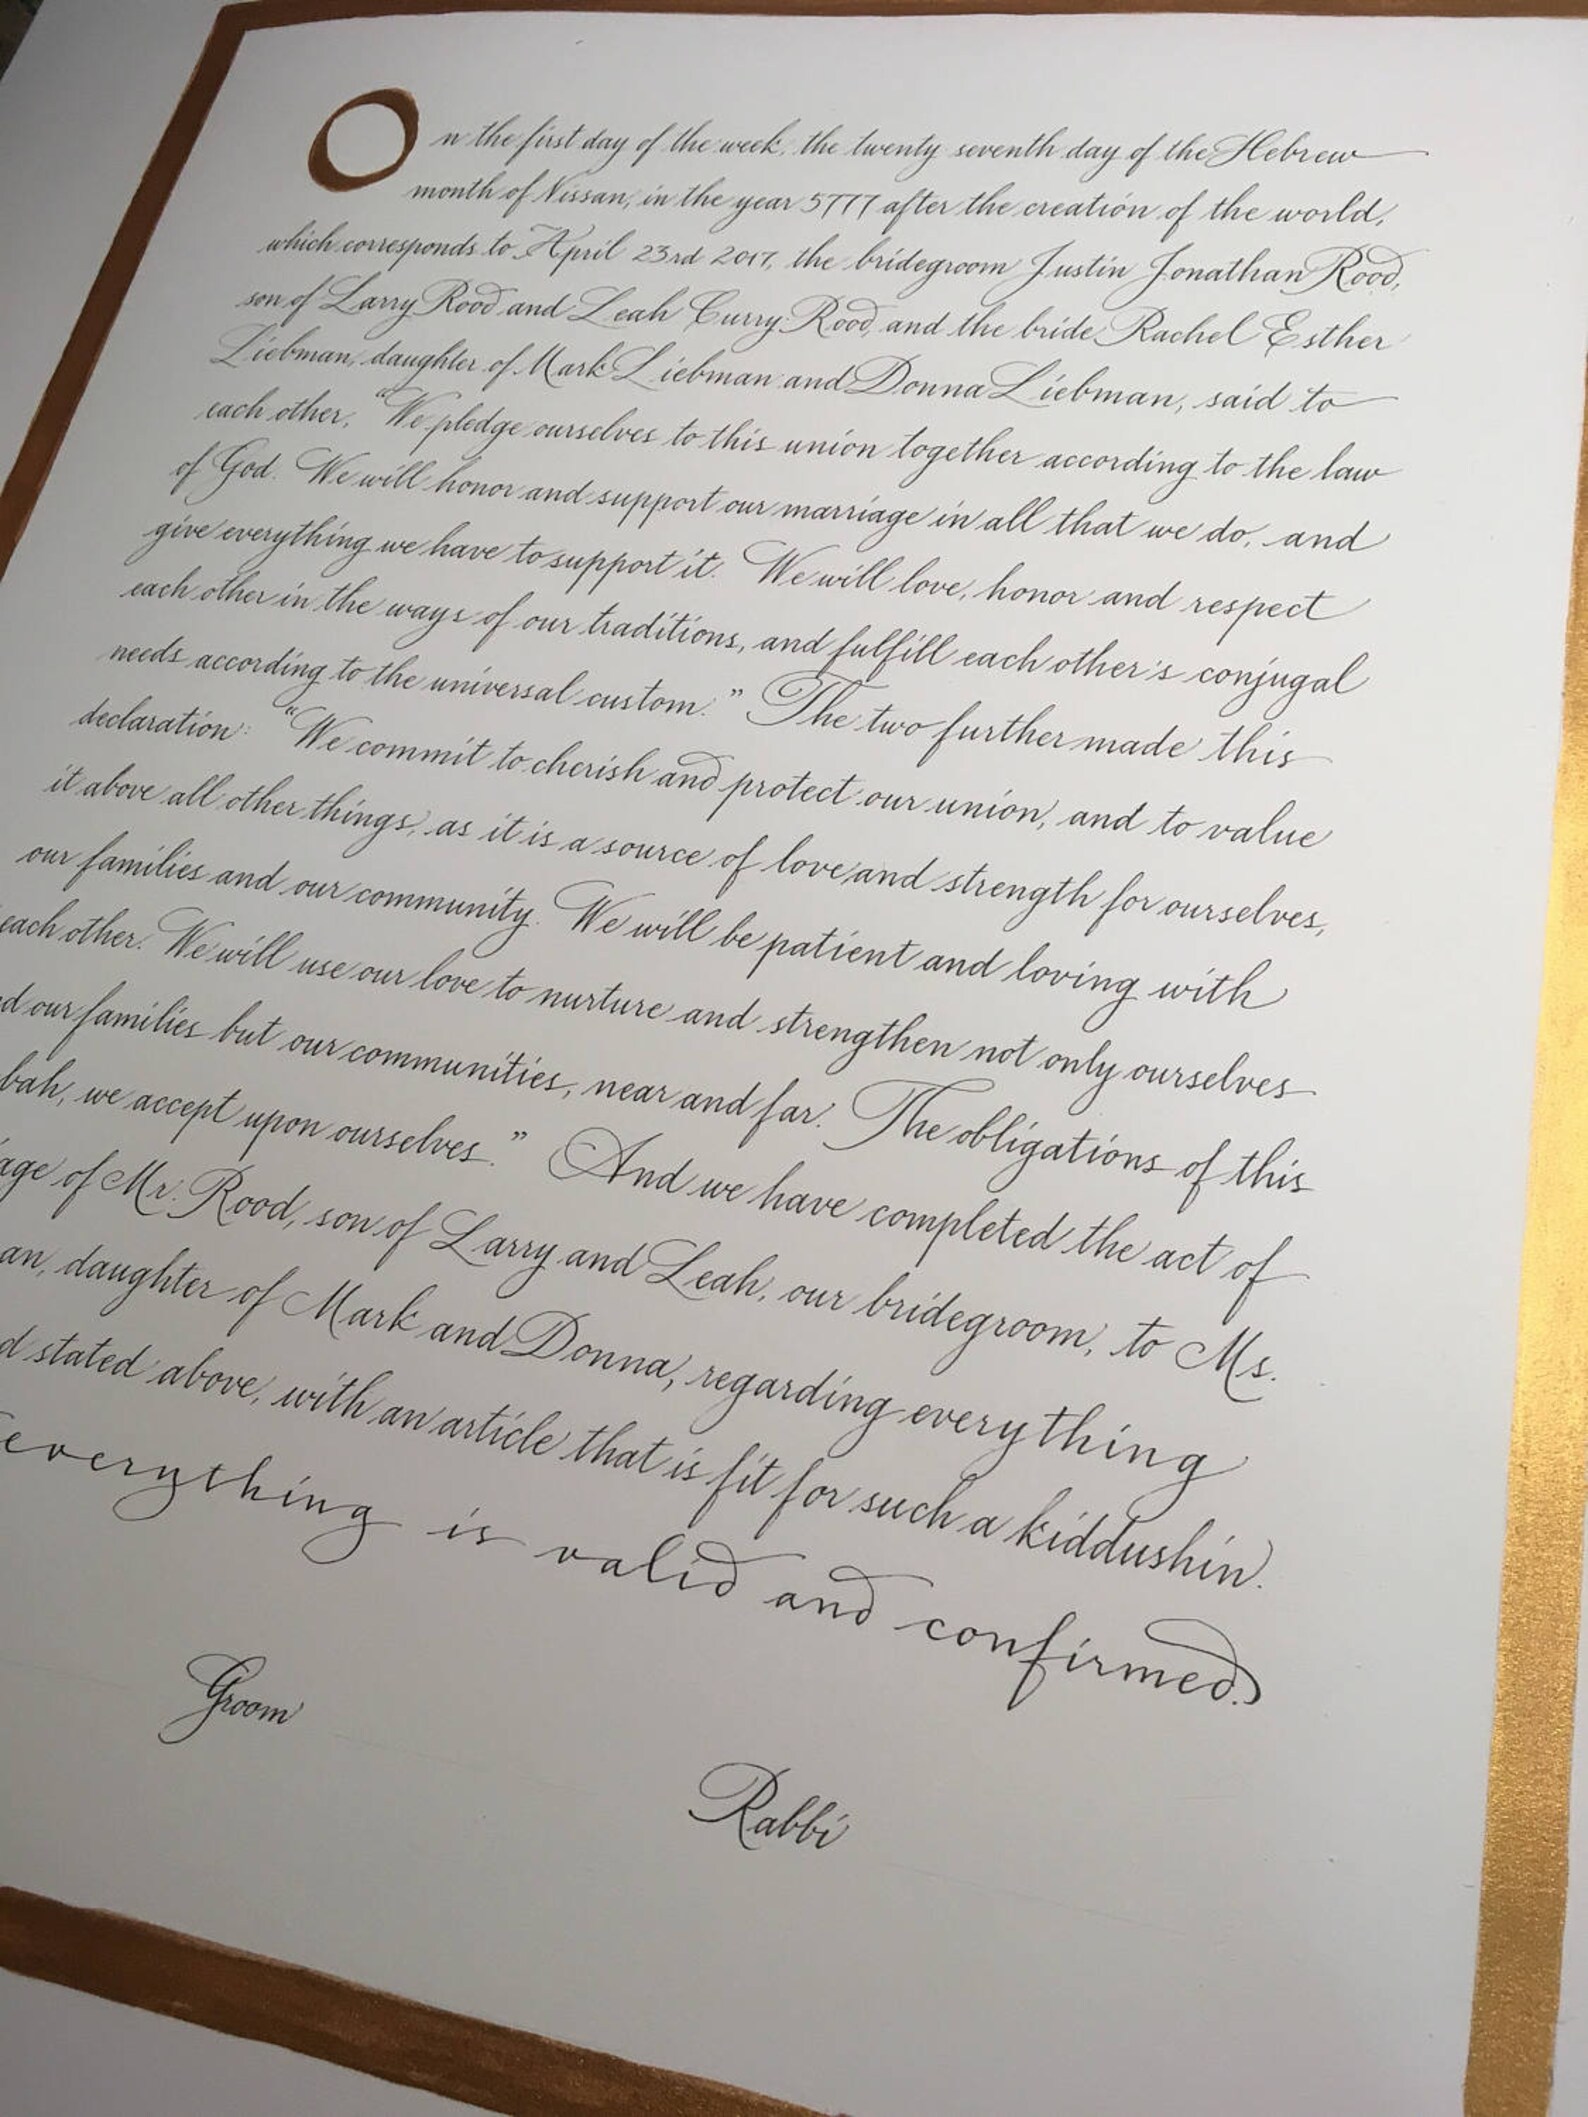 On the first day of the week, the twenty seventh day of the Hebrew
month of Nissan, in the year 5777 after the creation of the world,
which corresponds to April 23rd 2017, the bridegroom Justin Jonathan Rood,
son of Larry Rood and Leah Curry Rood, and the bride Rachel Esther
Liebman, daughter of Mark Liebman and Donna Liebman, said to
each other, "We pledge ourselves to this union together according to the law
of God. We will honor and support our marriage in all that we do, and
give everything we have to support it. We will love, honor and respect
each other in the ways of our traditions, and fulfill each other's conjugal
needs according to the universal custom." The two further made this
declaration: "We commit to cherish and protect our union, and to value
it above all other things, as it is a source of love and strength for ourselves,
our families and our community. We will be patient and loving with
each other. We will use our love to nurture and strengthen not only ourselves
d our families but our communities, near and far. The obligations of this
bah, we accept upon ourselves." And we have completed the act of
age of Mr. Rood, son of Larry and Leah, our bridegroom, to Ms.
an, daughter of Mark and Donna, regarding everything
d stated above, with an article that is fit for such a kiddushin.
everything is valid and confirmed.
Groom
Rabbi